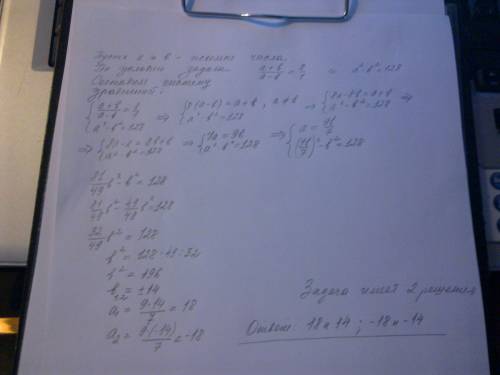 Пусть a и b - искомые числа.
По условию задачи (a+b)/(a-b) = 8/1 и a²-b²=128
Составим систему
уравнений:
{(a+b)/(a-b) = 8/1; a²-b²=128 ⇒ {8(a-b)=a+b, a≠b; a²-b²=128 ⇒ {8a-8b=a+b; a²-b²=128 ⇒
⇒ {8a-a=8b+b; a²-b²=128 ⇒ {7a=9b; a²-b²=128 ⇒ {a=9b/7; (9b/7)²-b²=128
81/49 b²-b²=128
81/49 b²-49/49 b²=128
32/49 b²=128
b²=128·49:32
b²=196
b₁,₂=±14
a₁=9·14/7=18
a₂=9·(-14)/7=-18
Задача имеет 2 решения
Ответ: 18 и 14; -18 и -14